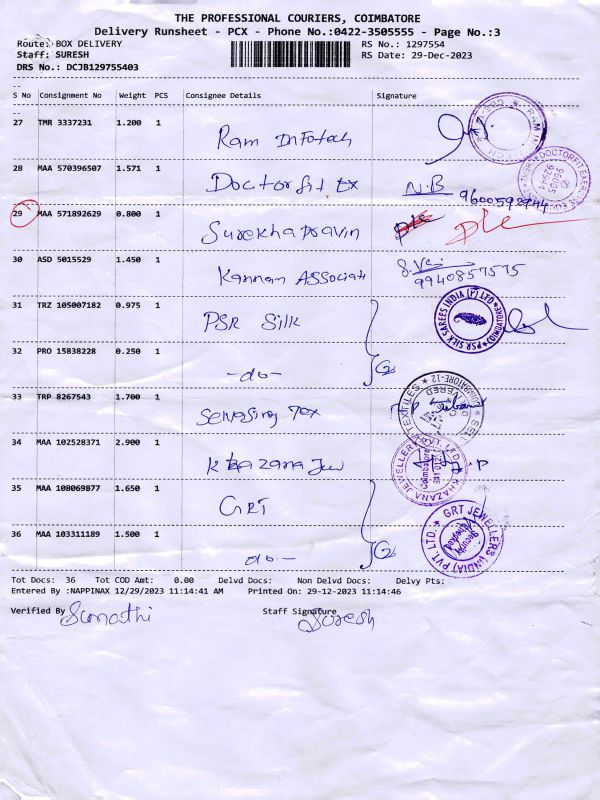 THE PROFESSIONAL COURIERS, COIMBATORE
Delivery Runsheet - PCX - Phone No.:0422-3505555 - Page No.:3
Route: BOX DELIVERY RS No.: 1297554
Staff: SURESH RS Date: 29-Dec-2023
DRS No.: DCJB129755403
S No Consignment No Weight PCS Consignee Details Signature
27 TMR 3337231 1.200 1
Ram Infotech
28 MAA 570396507 1.571 1
Doctorfit Ex N.B 9600592944
29 MAA 571892629 0.800 1
Surekha pravin
30 ASD 5015529 1.450 1
Kannam Associati 9940857575
31 TRZ 105007182 0.975 1
PSR Silk
PSR SILK SAREES INDIA (P) LTD
32 PRO 15838228 0.250 1
-do-
33 TRP 8267543 1.700 1
Selvasing Tex
TEXTILES
COIMBATORE-12
34 MAA 102528371 2.900 1
Khazana Jew
KHAZANA JEWELLERY
Coimbatore
35 MAA 108069877 1.650 1
GRT
36 MAA 103311189 1.500 1
do-
GRT JEWELLERS (INDIA) PVT. LTD.
Tot Docs: 36 Tot COD Amt: 0.00 Delvd Docs: Non Delvd Docs: Delvy Pts:
Entered By :NAPPINAX 12/29/2023 11:14:41 AM Printed On: 29-12-2023 11:14:46
Verified By Sumathi Staff Signature Suresh